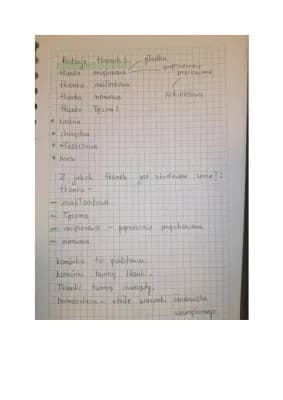 Rodzaje tkanek:
gładka
tkanka mięśniowa
poprzecznie prążkowana
tkanka nabłonkowa
tkanka nerwowa
szkieletowa
tkanka łączna:
* kostna
* chrzęstna
* tłuszczowa
* krew
Z jakich tkanek jest zbudowane serce?:
tkanka -
- nabłonkowa
- łączna
- mięśniowa - poprzecznie prążkowana
- nerwowa
komórka to podstawa.
komórki tworzą tkanki.
Tkanki tworzą narządy.
homeostaza - stałe warunki środowiska
wewnętrznego.